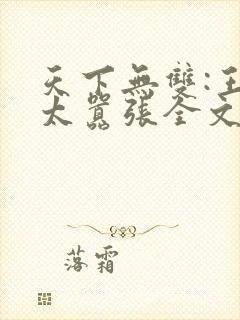 天下無雙:王
太囂張全文
落霜